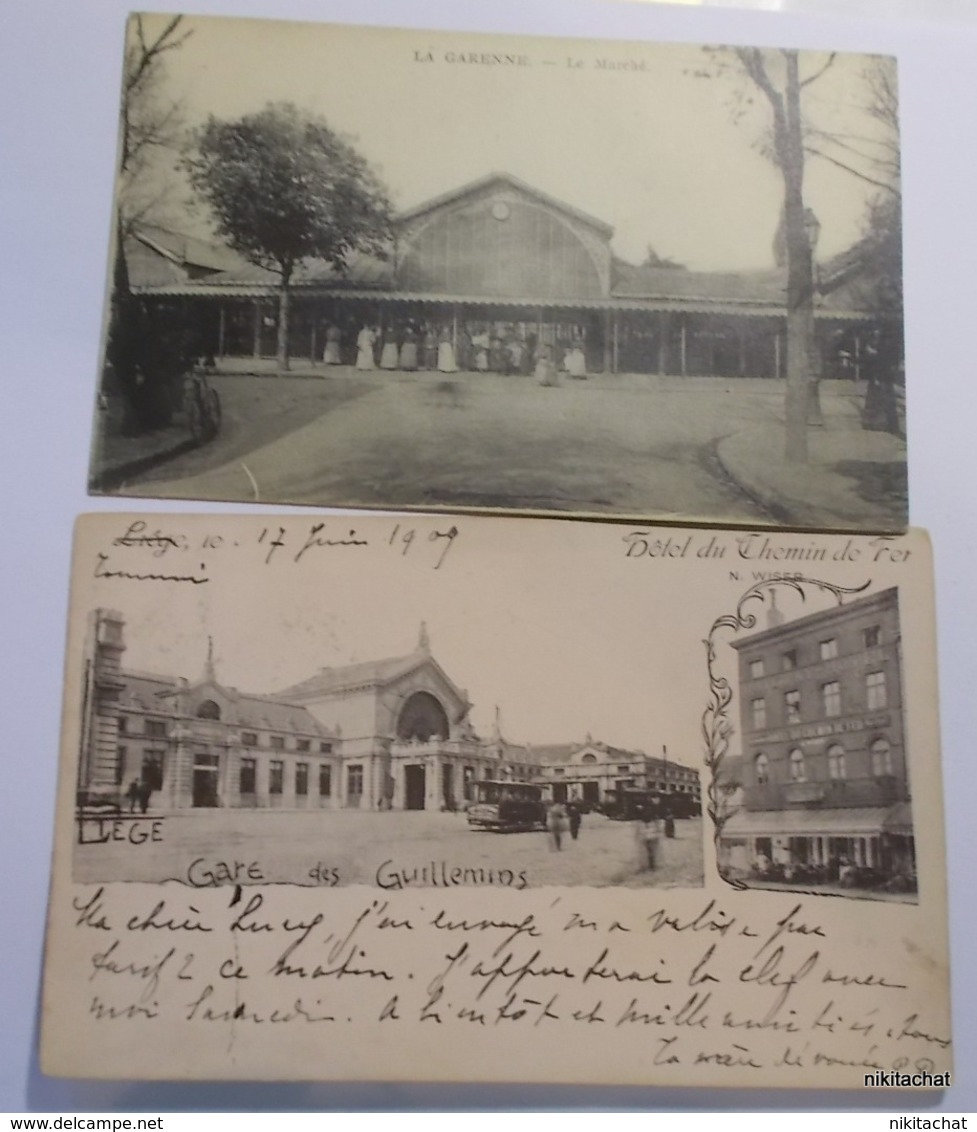 LA GARENNE. — Le Marché.
Liége, le 17 Juin 1909
Hôtel du Chemin de Fer
N. WISER
LIEGE
Gare des Guillemins
Ma chère Lucy, j'ai envoyé ma valise par
tarif 2 ce matin. J'apporterai la clef avec
moi Samedi. A bientôt et mille amitiés à tous
Ta dévouée
nikitachat
nikitachat
delcampe.net